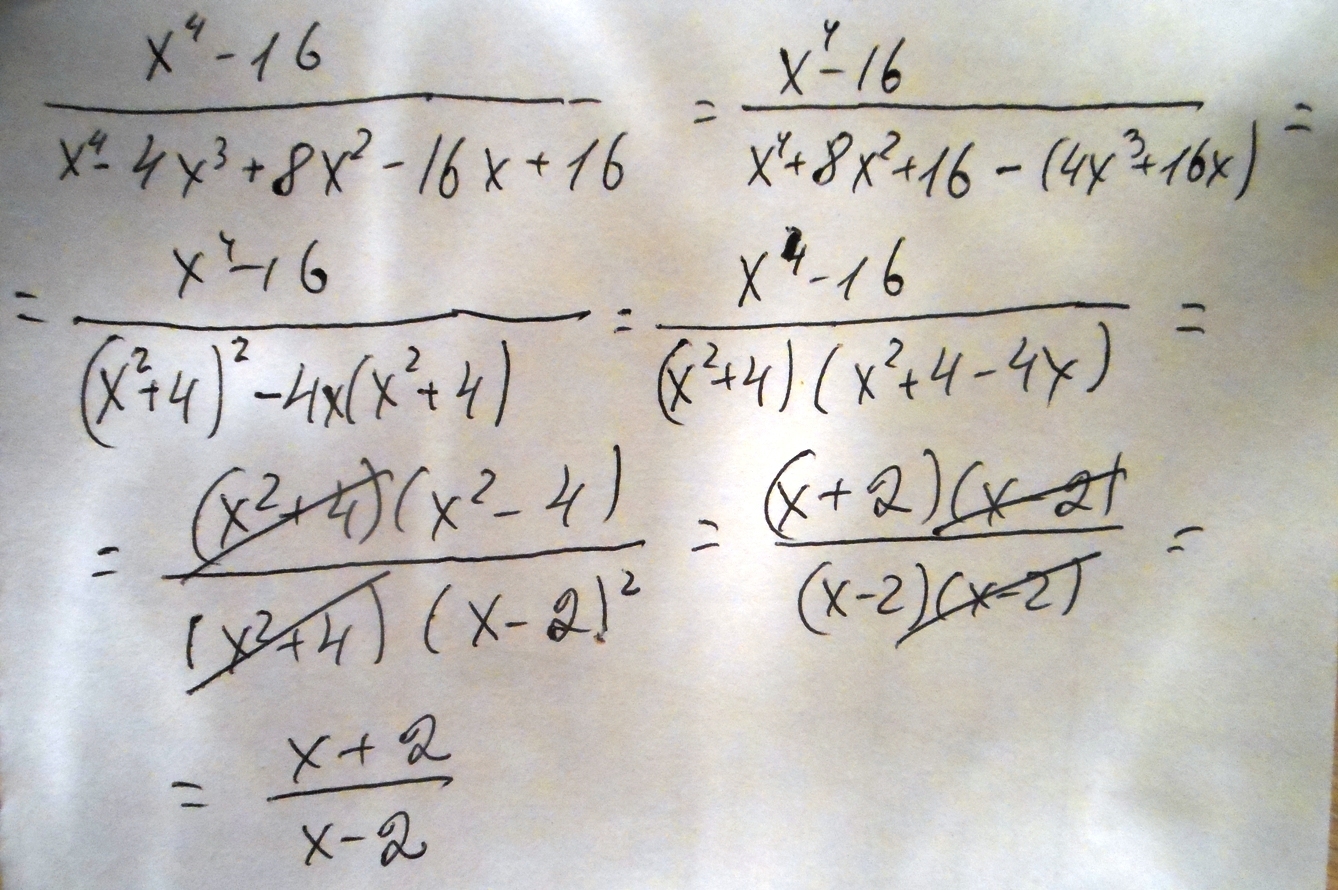 \frac{x^4-16}{x^4-4x^3+8x^2-16x+16} = \frac{x^4-16}{x^4+8x^2+16-(4x^3+16x)} =
= \frac{x^4-16}{(x^2+4)^2-4x(x^2+4)} = \frac{x^4-16}{(x^2+4)\cdot(x^2+4-4x)} =
= \frac{\cancel{(x^2+4)}(x^2-4)}{\cancel{(x^2+4)}(x-2)^2} = \frac{(x+2)\cancel{(x-2)}}{(x-2)\cancel{(x-2)}} =
= \frac{x+2}{x-2}